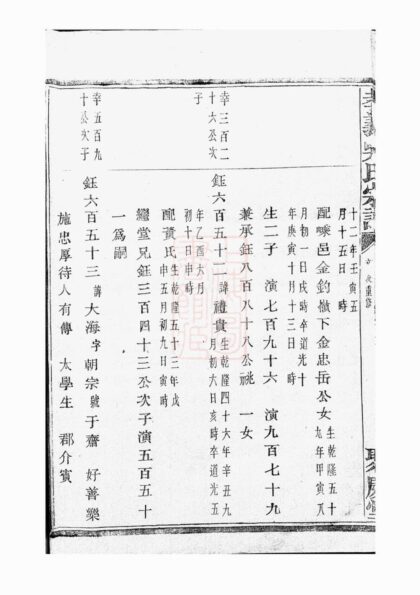 十二年壬寅五
月十五日時
配嵊邑金釣橄下金忠岳公女 生乾隆五十
九年甲寅八
月初一日戌時卒道光十
年庚寅十月十三日時
生二子 演七百九十六 演九百七十九
兼承鈺八百八十八公祧 一女
幸三百二
十六公次
子
鈺六百五十二 諱禮貴 生乾隆四十六年辛丑九
月初六日亥時卒道光五
年乙酉六月
初十日申時
配黃氏 生乾隆五十三年戊
申五月初九日寅時
繼堂兄鈺三百四十三公次子演五百五十
一為嗣
幸五百九
十公次子
鈺六百五十三 諱大海字朝宗號于齋 好善樂
施忠厚待人有傳 太學生 郡介賓